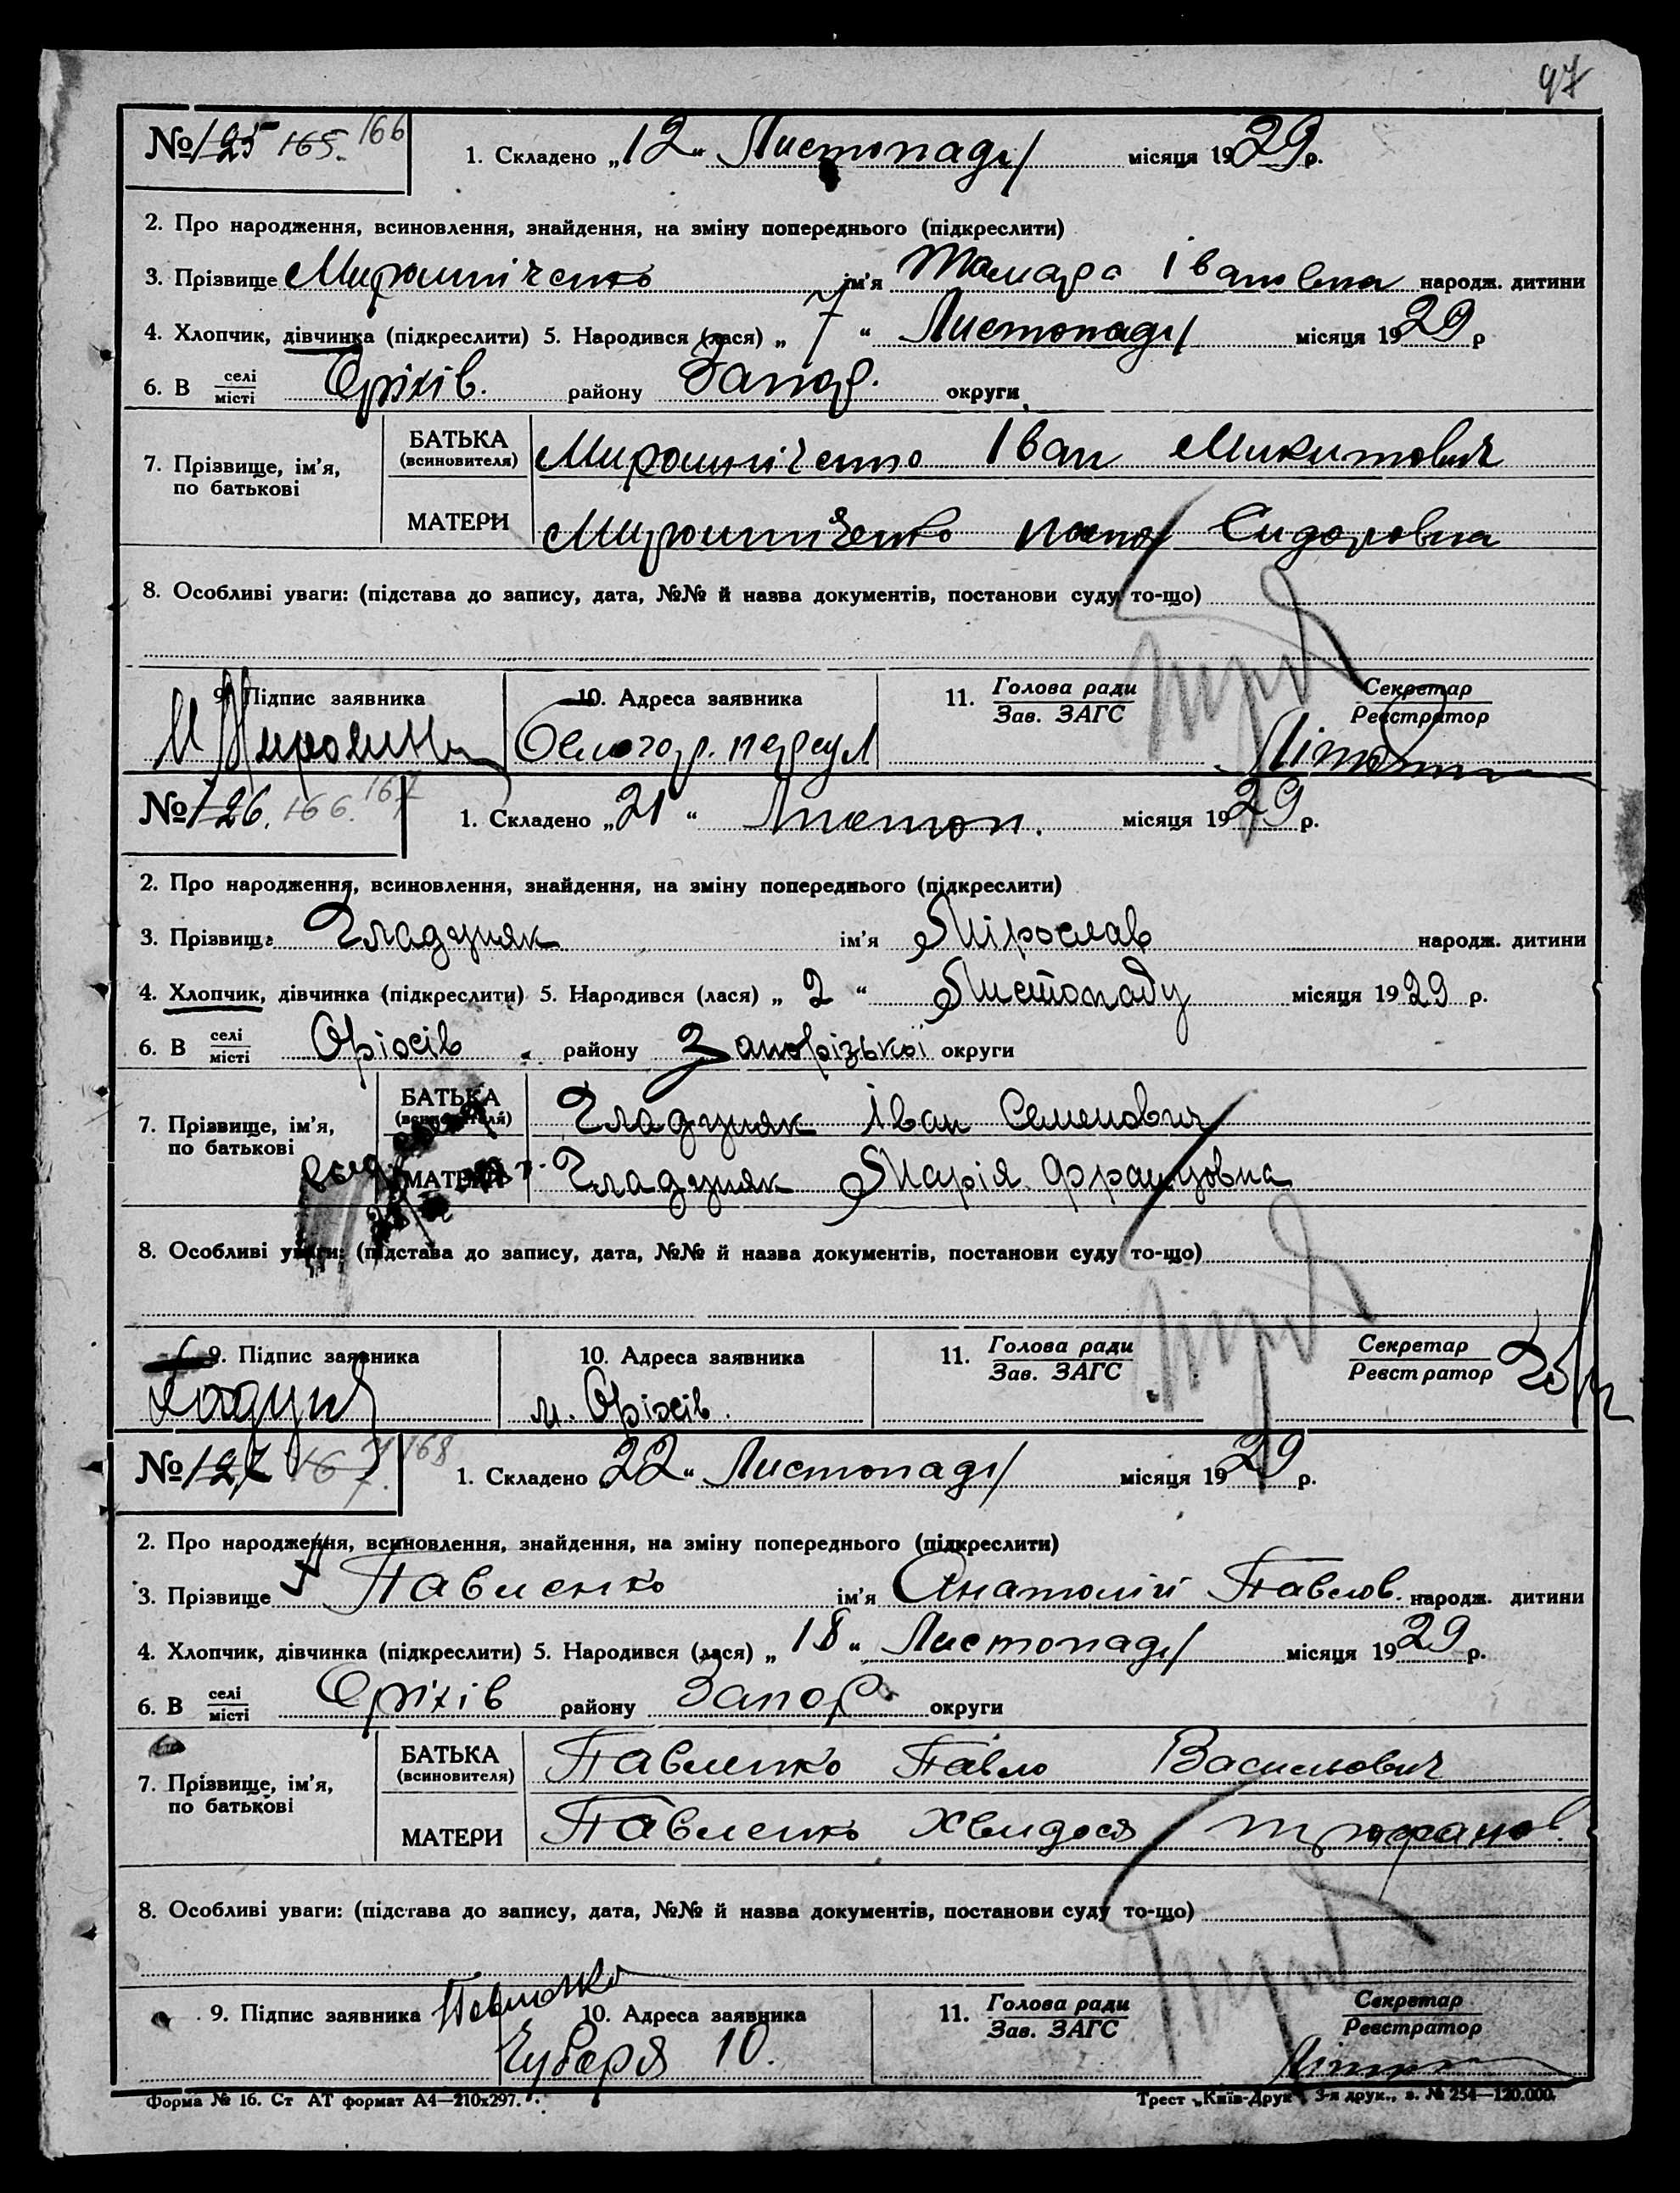 97
№ 125 165. 166
1. Складено „12“ Листопада місяця 1929 р.
2. Про народження, всиновлення, знайдення, на зміну попереднього (підкреслити)
3. Прізвище Мирошніченко ім'я Тамара Івановна народж. дитини
4. Хлопчик, дівчинка (підкреслити) 5. Народився (лася) „7“ Листопада місяця 1929 р
6. В селі місті Оріхів. району Запор. округи
7. Прізвище, ім'я, по батькові
БАТЬКА (всиновителя) Мирошніченко Іван Микитович
МАТЕРИ Мирошніченко Сидоровна
8. Особливі уваги: (підстава до запису, дата, №№ й назва документів, постанови суду то-що)
9. Підпис заявника 10. Адреса заявника 11. Голова ради Зав. ЗАГС Секретар Реєстратор
№ 126. 166. 167
1. Складено „21“ Листоп. місяця 1929 р.
2. Про народження, всиновлення, знайдення, на зміну попереднього (підкреслити)
3. Прізвище Гладуняк ім'я Мірослав народж. дитини
4. Хлопчик, дівчинка (підкреслити) 5. Народився (лася) „2“ Листопаду місяця 1929 р.
6. В селі місті Оріхів району Запорізької округи
7. Прізвище, ім'я, по батькові
БАТЬКА (всиновителя) Гладуняк Іван Семенович
МАТЕРИ Гладуняк Марія Францовна
8. Особливі уваги: (підстава до запису, дата, №№ й назва документів, постанови суду то-що)
9. Підпис заявника 10. Адреса заявника 11. Голова ради Зав. ЗАГС Секретар Реєстратор
м. Оріхів.
№ 127 167. 168
1. Складено „22“ Листопада місяця 1929 р.
2. Про народження, всиновлення, знайдення, на зміну попереднього (підкреслити)
3. Прізвище Павленко ім'я Анатолій Павлов. народж. дитини
4. Хлопчик, дівчинка (підкреслити) 5. Народився (лася) „18“ Листопада місяця 1929 р.
6. В селі місті Оріхів району Запор. округи
7. Прізвище, ім'я, по батькові
БАТЬКА (всиновителя) Павленко Павло Васильович
МАТЕРИ Павленко Хвидося Трофанов.
8. Особливі уваги: (підстава до запису, дата, №№ й назва документів, постанови суду то-що)
9. Підпис заявника Павленко 10. Адреса заявника 11. Голова ради Зав. ЗАГС Секретар Реєстратор
Чубаря 10.
Форма № 16. Ст АТ формат А4—210х297. Трест „Київ-Друк“, 3-я друк., з. № 254—120.000.